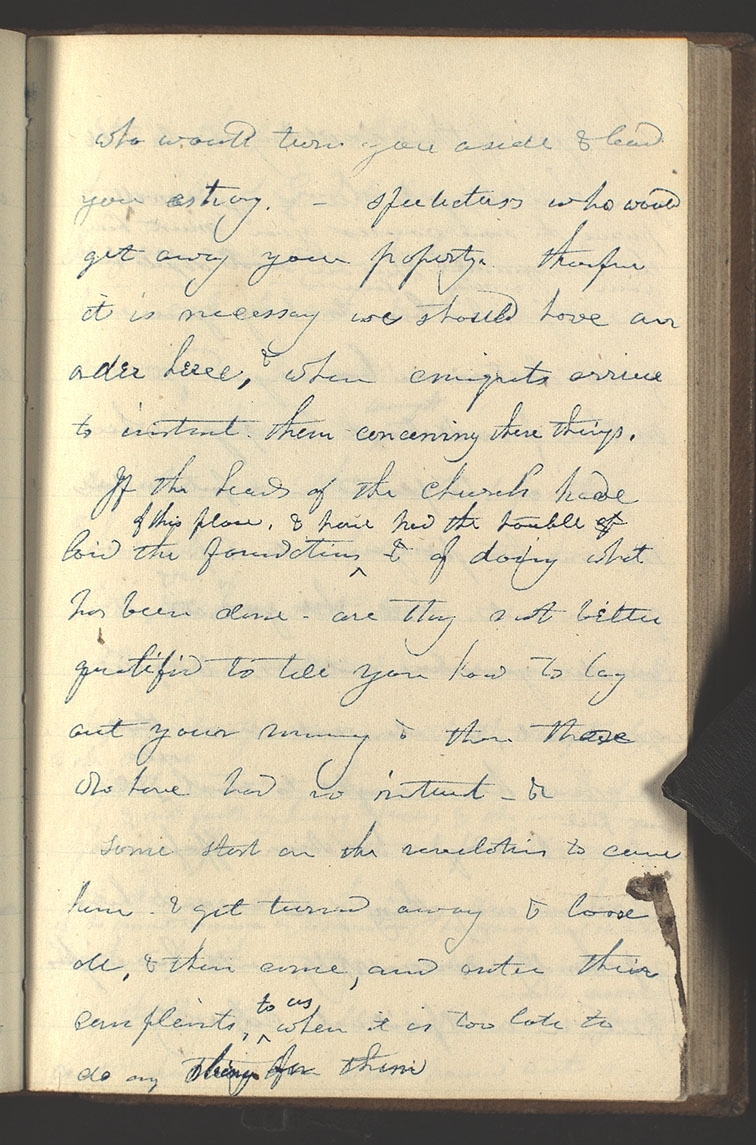 who would turn you aside & lead
you astray. - speculators who would
get away your property. therefore
it is necessary we should have an
order here, & when emigrants arrive
to instruct them concerning these things.
If the heads of the church have
of this place, & have had the trouble of
laid the foundation & of doing what
has been done - are they not better
qualifid to tell you how to lay
out your money & than those
who have had no intrest - &c
Some start on the revelation to come
here & get turned away & loose
all, & then come, and enter their
to us,
complaints, when it is too late to
do any thing for them